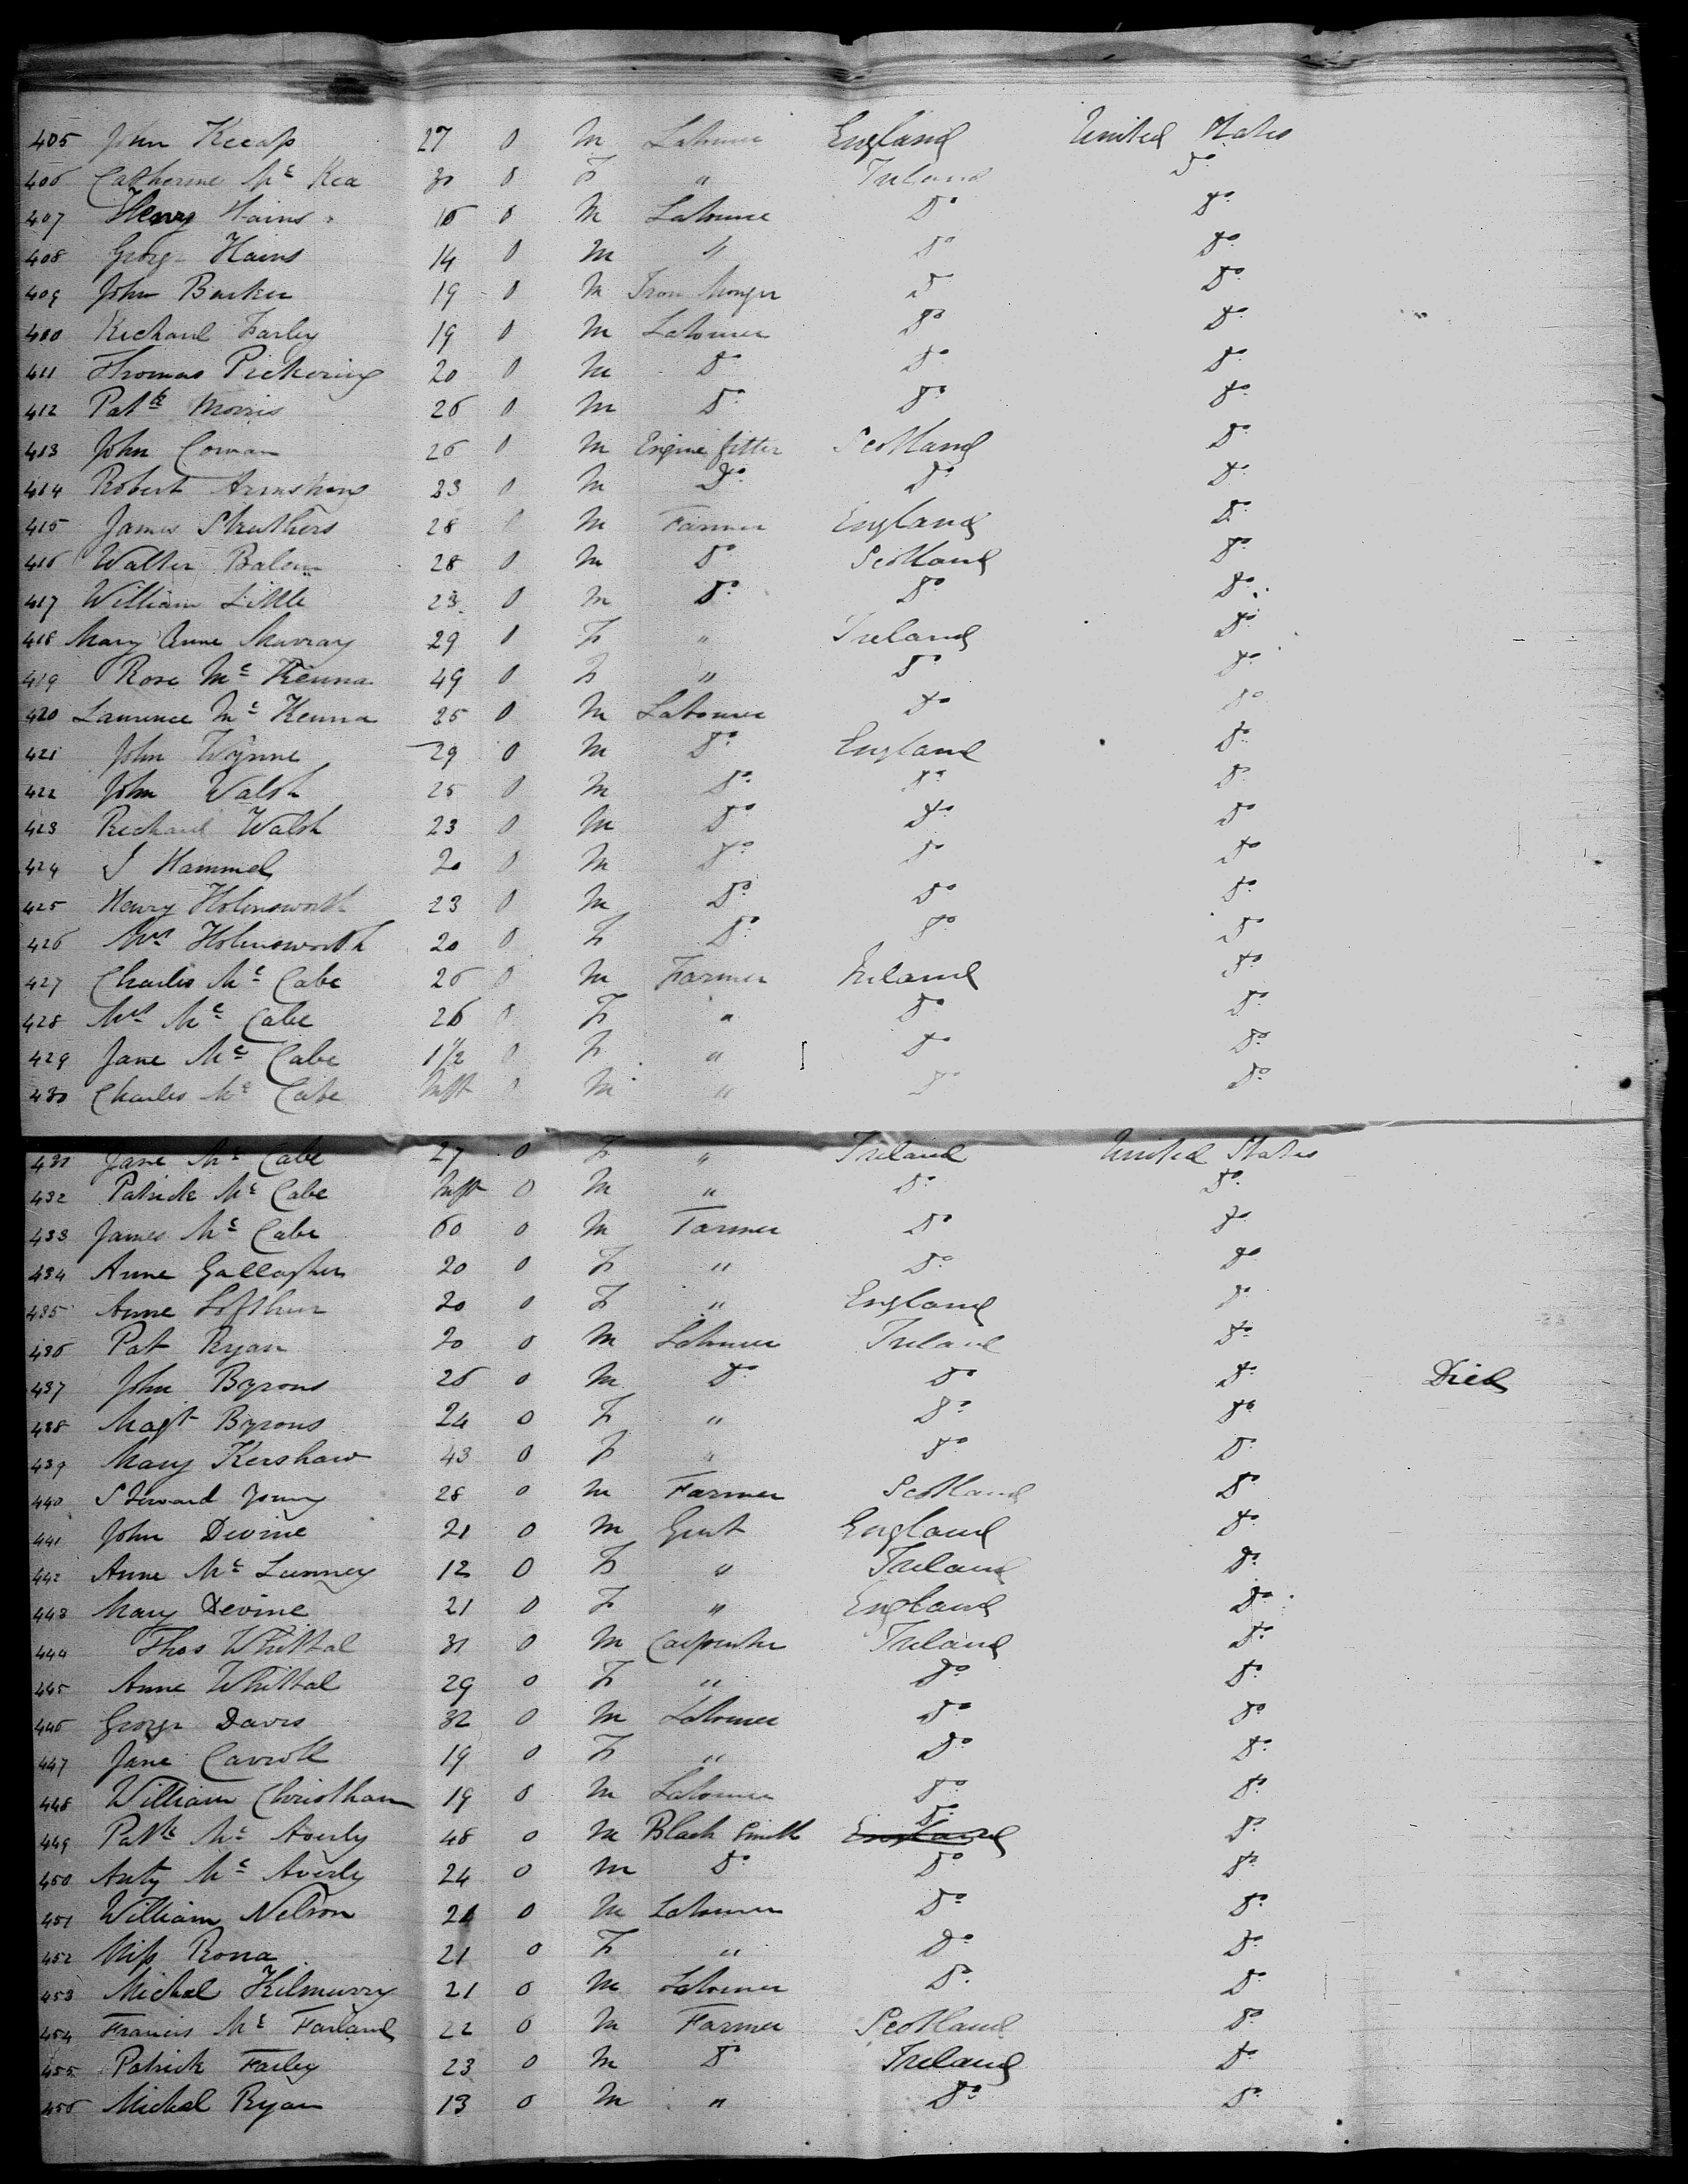 405 John Keeap 27 0 M Labourer England United States
406 Catherine Mc Kea 30 0 F " Ireland Do
407 Henry Hains 16 0 M Labourer Do Do
408 George Hains 14 0 M " Do Do
409 John Barker 19 0 M Iron Monger Do Do
410 Richard Farley 19 0 M Labourer Do Do
411 Thomas Pickering 20 0 M Do Do Do
412 Patk Morris 26 0 M Do Do Do
413 John Cowan 26 0 M Engine fitter Scotland Do
414 Robert Armstrong 23 0 M Do Do Do
415 James Struthers 28 0 M Farmer England Do
416 Walter 28 0 M Do Scotland Do
417 William Little 23 0 M Do Do Do
418 Mary Anne Murray 29 0 F " Ireland Do
419 Rose Mc Kenna 49 0 F " Do Do
420 Laurence Mc Kenna 25 0 M Labourer Do Do
421 John Wynne 29 0 M Do England Do
422 John Walsh 25 0 M Do Do Do
423 Richard Walsh 23 0 M Do Do Do
424 J Hammel 20 0 M Do Do Do
425 Henry Holmsworth 23 0 M Do Do Do
426 Mrs Holmsworth 20 0 F Do Do Do
427 Charles Mc Cabe 26 0 M Farmer Ireland Do
428 Mrs Mc Cabe 26 0 F " Do Do
429 Jane Mc Cabe 1 1/2 0 F " Do Do
430 Charles Mc Cabe Inft 0 M " Do Do
431 Jane Mc Cabe 27 0 F " Ireland United States
432 Patrick Mc Cabe Inft 0 M " Do Do
433 James Mc Cabe 60 0 M Farmer Do Do
434 Anne Gallagher 20 0 F " Do Do
435 Anne Lofthur 20 0 F " England Do
436 Pat Ryan 20 0 M Labourer Ireland Do
437 John Byrons 26 0 M Do Do Do Died
438 Magt Byrons 24 0 F " Do Do
439 Mary Kershaw 43 0 F " Do Do
440 Steward Young 28 0 M Farmer Scotland Do
441 John Devine 21 0 M Gent England Do
442 Anne Mc Lunney 12 0 F " Ireland Do
443 Mary Devine 21 0 F " England Do
444 Thos Whittal 31 0 M Carpenter Ireland Do
445 Anne Whittal 29 0 F " Do Do
446 George Davis 32 0 M Labourer Do Do
447 Jane Carroll 19 0 F " Do Do
448 William Christham 19 0 M Labourer Do Do
449 Patk Mc Averly 48 0 M Black Smith England Do Do
450 Anty Mc Averly 24 0 M Do Do Do
451 William Nelson 21 0 M Labourer Do Do
452 Miss Rona 21 0 F " Do Do
453 Michal Kilmurry 21 0 M Labourer Do Do
454 Francis Mc Farland 22 0 M Farmer Scotland Do
455 Patrick Farley 23 0 M Do Ireland Do
456 Michal Ryan 13 0 M " Do Do